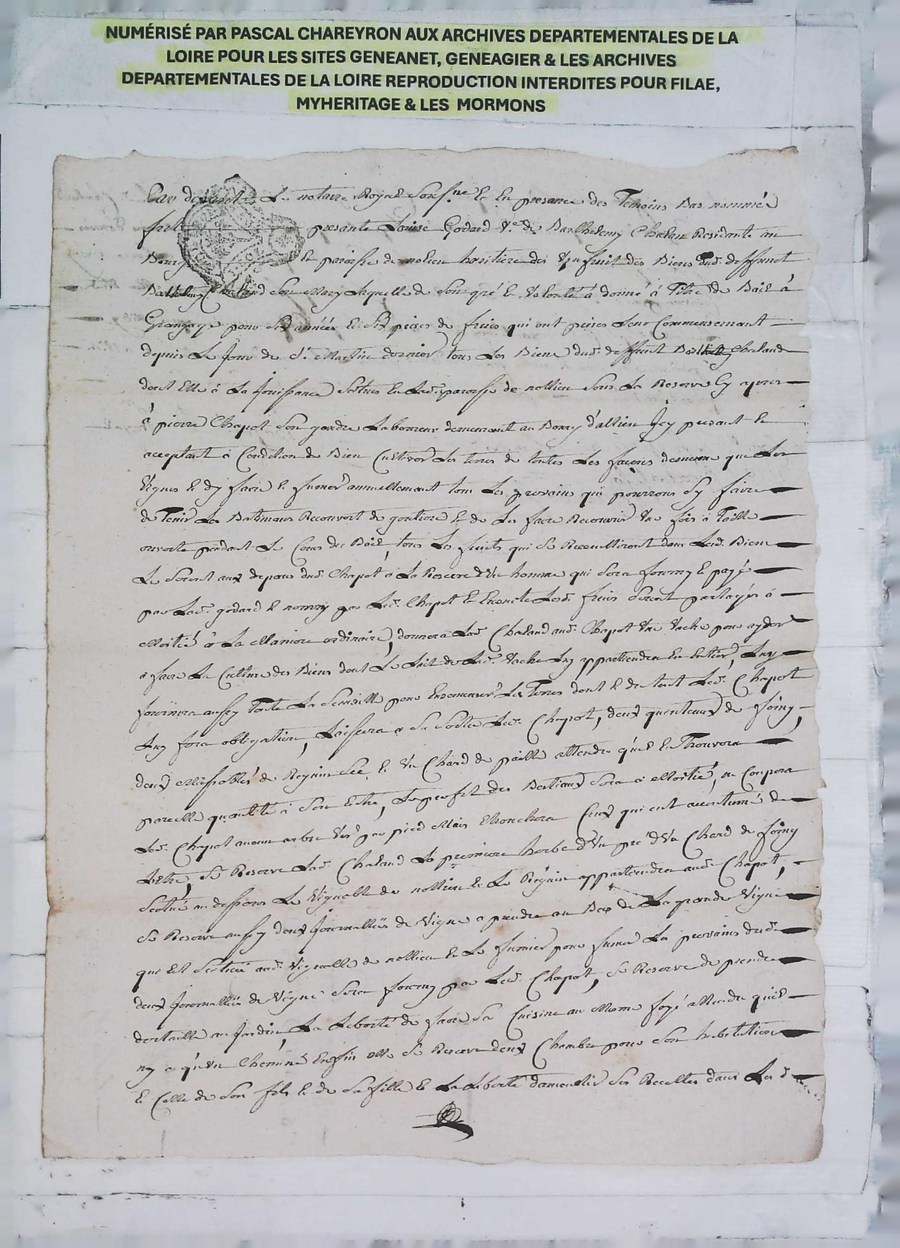 NUMÉRISÉ PAR PASCAL CHAREYRON AUX ARCHIVES DEPARTEMENTALES DE LA
LOIRE POUR LES SITES GENEANET, GENEAGIER & LES ARCHIVES
DEPARTEMENTALES DE LA LOIRE REPRODUCTION INTERDITES POUR FILAE,
MYHERITAGE & LES MORMONS
Par le notaire Royal Sousne et en presence des Temoins Bas nommés
presante Louise Godard ve de Barthelemy Chaland Residante au
Bourg et paroisse de nolieu heritiere des usufruit des Biens dud. deffunt
Chaland son Mary Laquelle de son gré et volonté à donné à Titre de Bail à
Grangage pour six années et six prises de fruis qui ont prises leur Commencement
depuis le jour de St Martin dernier tous les Biens dud. deffunt Chaland
dont Elle à La Jouissance Scitués en lad. paroisse de nollieu sous La Reserve Cy apres
à pierre Chapot son gendre Laboureur demeurant au Bourg d'allieu Icy presant et
acceptant à Condition de Bien Cultiver les terres de toutes les façons que Les
Vignes et dy faire et fumer annuellement tous les provains qui pourrons sy faire
de Tenir Les Batimens Recouvert de goutiere et de les faire Recouvrir une fois à Taille
ouverte pendant Le Cours du Bail, tous les fruits qui se Recueilliront dans Lesd. Biens
Le seront aux depens dud. Chapot à La Reserve d'un homme qui sera fourny et payé
par Lad. godard et nourry par Led. Chapot et Ensuite Lesd. fruis seront partagés à
Moitié à La Maniere ordinaire, donnera Lad. Chaland aud. Chapot une vache pour ayder
à faire La Culture des Biens dont Le Lait de Lad. vache luy appartiendra En Entier, Luy
fournira aussy Toute La Semaille pour Ensemencer Les Terres dont et du tout Led. Chapot
Luy fera obligation, Laissera à Sa Sortie Led. Chapot, deux quintaux de foing,
deux de Regain Sec, et un Chard de paille attendu qu'il en Trouvera
pareille quantité à Son Entrée, Le profit des Bestiaux Sera à Moitié, ne Coupera
Led. Chapot aucun arbre vert par pied Mais Ebranchera Ceux qui ont accoutumé de
Letre, Se Reserve Lad. Chaland La premiere herbe d'un pré d'un Chard de foing
Scitué au dessous Le Vignoble de nollieu et Le Regain appartiendra aud. Chapot,
Se Reserve aussy deux Journallées de Vigne à prendre au Bas de La grande Vigne
qui Est Scituée aud. Vignoble de nollieu et Le fumier pour fumer La provains desd.
deux Journallées de Vigne Sera fourny par Led. Chapot, Se Reserve de prendre
au Jardin, La Liberté de faire Sa Cuisine au Meme foyé attendu qu'il
ny a qu'un Cheminé Enfin elle Se Reserve deux Chambres pour Son habitation
et Celle de Son fils et de Sa fille et La Liberté Ses Recoltes dans Les